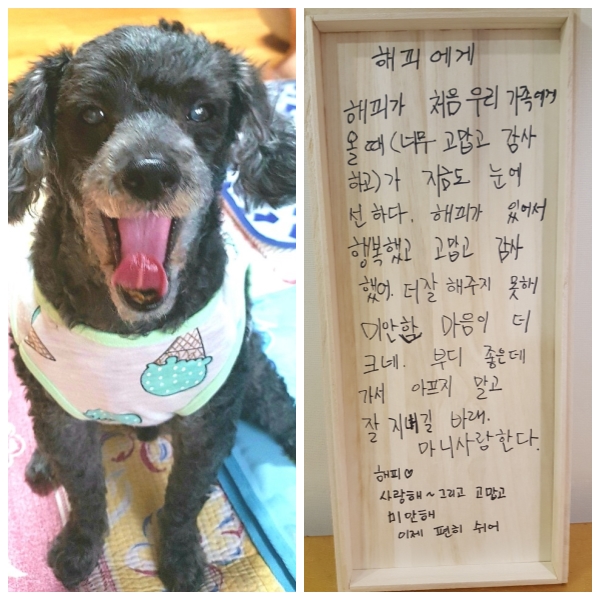 해피에게
해피가 처음 우리 가족에게
올 때 (너무 고맙고 감사
하고)가 지금도 눈에
선하다. 해피가 있어서
행복했고 고맙고 감사
했어. 더잘 해주지 못해
미안함 마음이 더
크네. 부디 좋은데
가서 아프지 말고
잘 지내길 바래.
마니사랑한다.
해피♡
사랑해~ 그리고 고맙고
미안해
이제 편히 쉬어